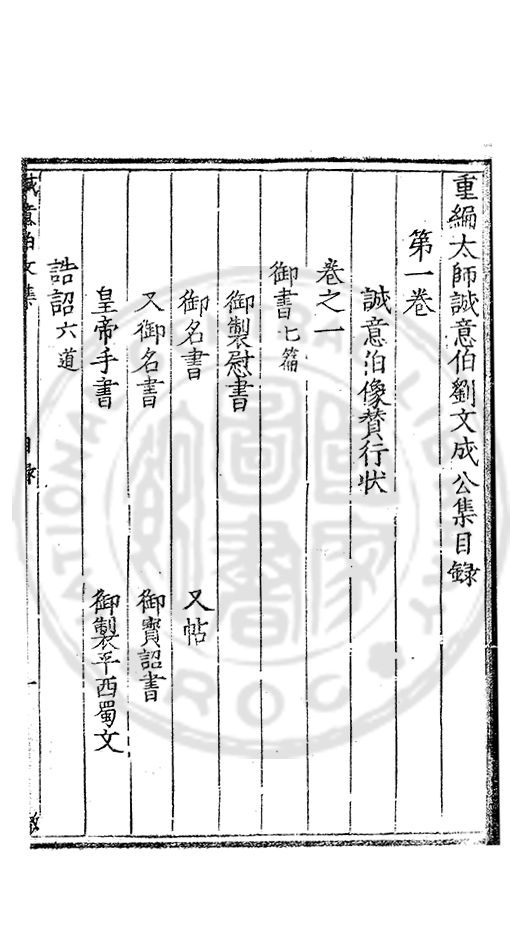 重編太師誠意伯劉文成公集目錄
第一卷
誠意伯像贊行狀
卷之一
御書七篇
御製慰書
御名書 又帖
又御名書 御寶詔書
皇帝手書 御製平西蜀文
誥詔六道
誠意伯文集 目錄 一
NATIONAL CENTRAL LIBRARY R.O.C.
國家圖書館